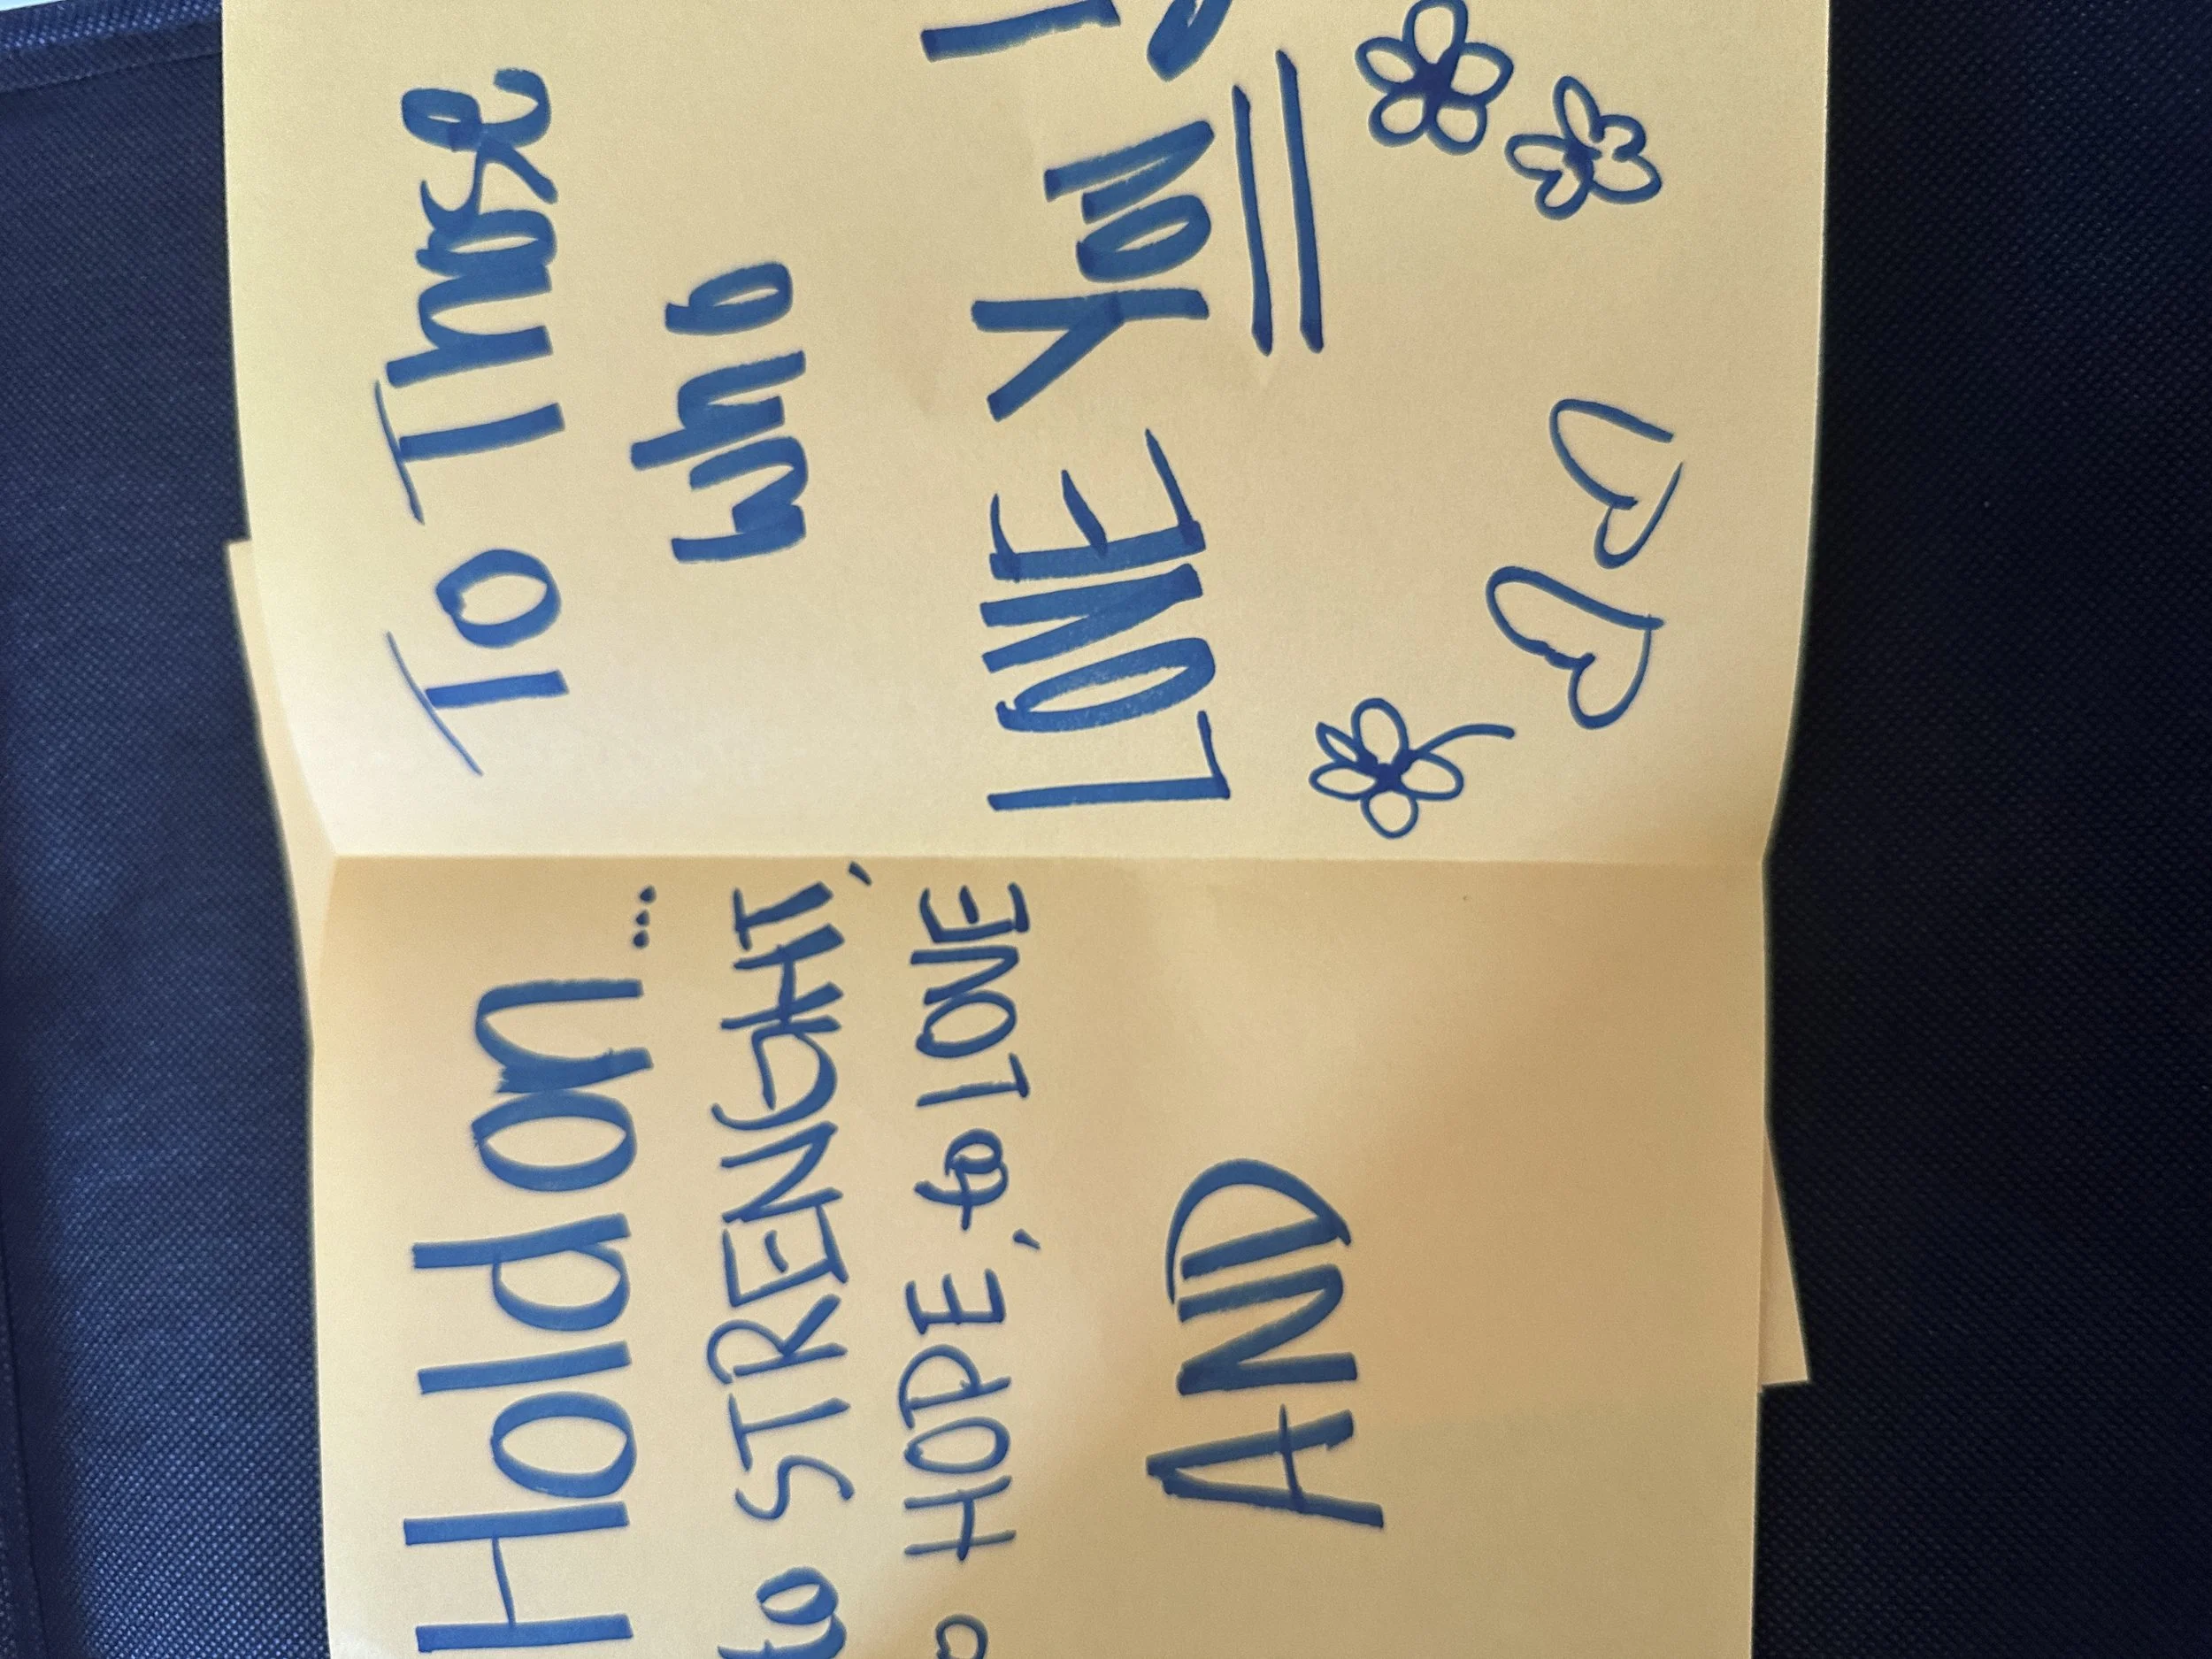 Hold on...
to STRENGHT,
to HOPE, to LOVE
AND
To Those
who
LOVE YOU!